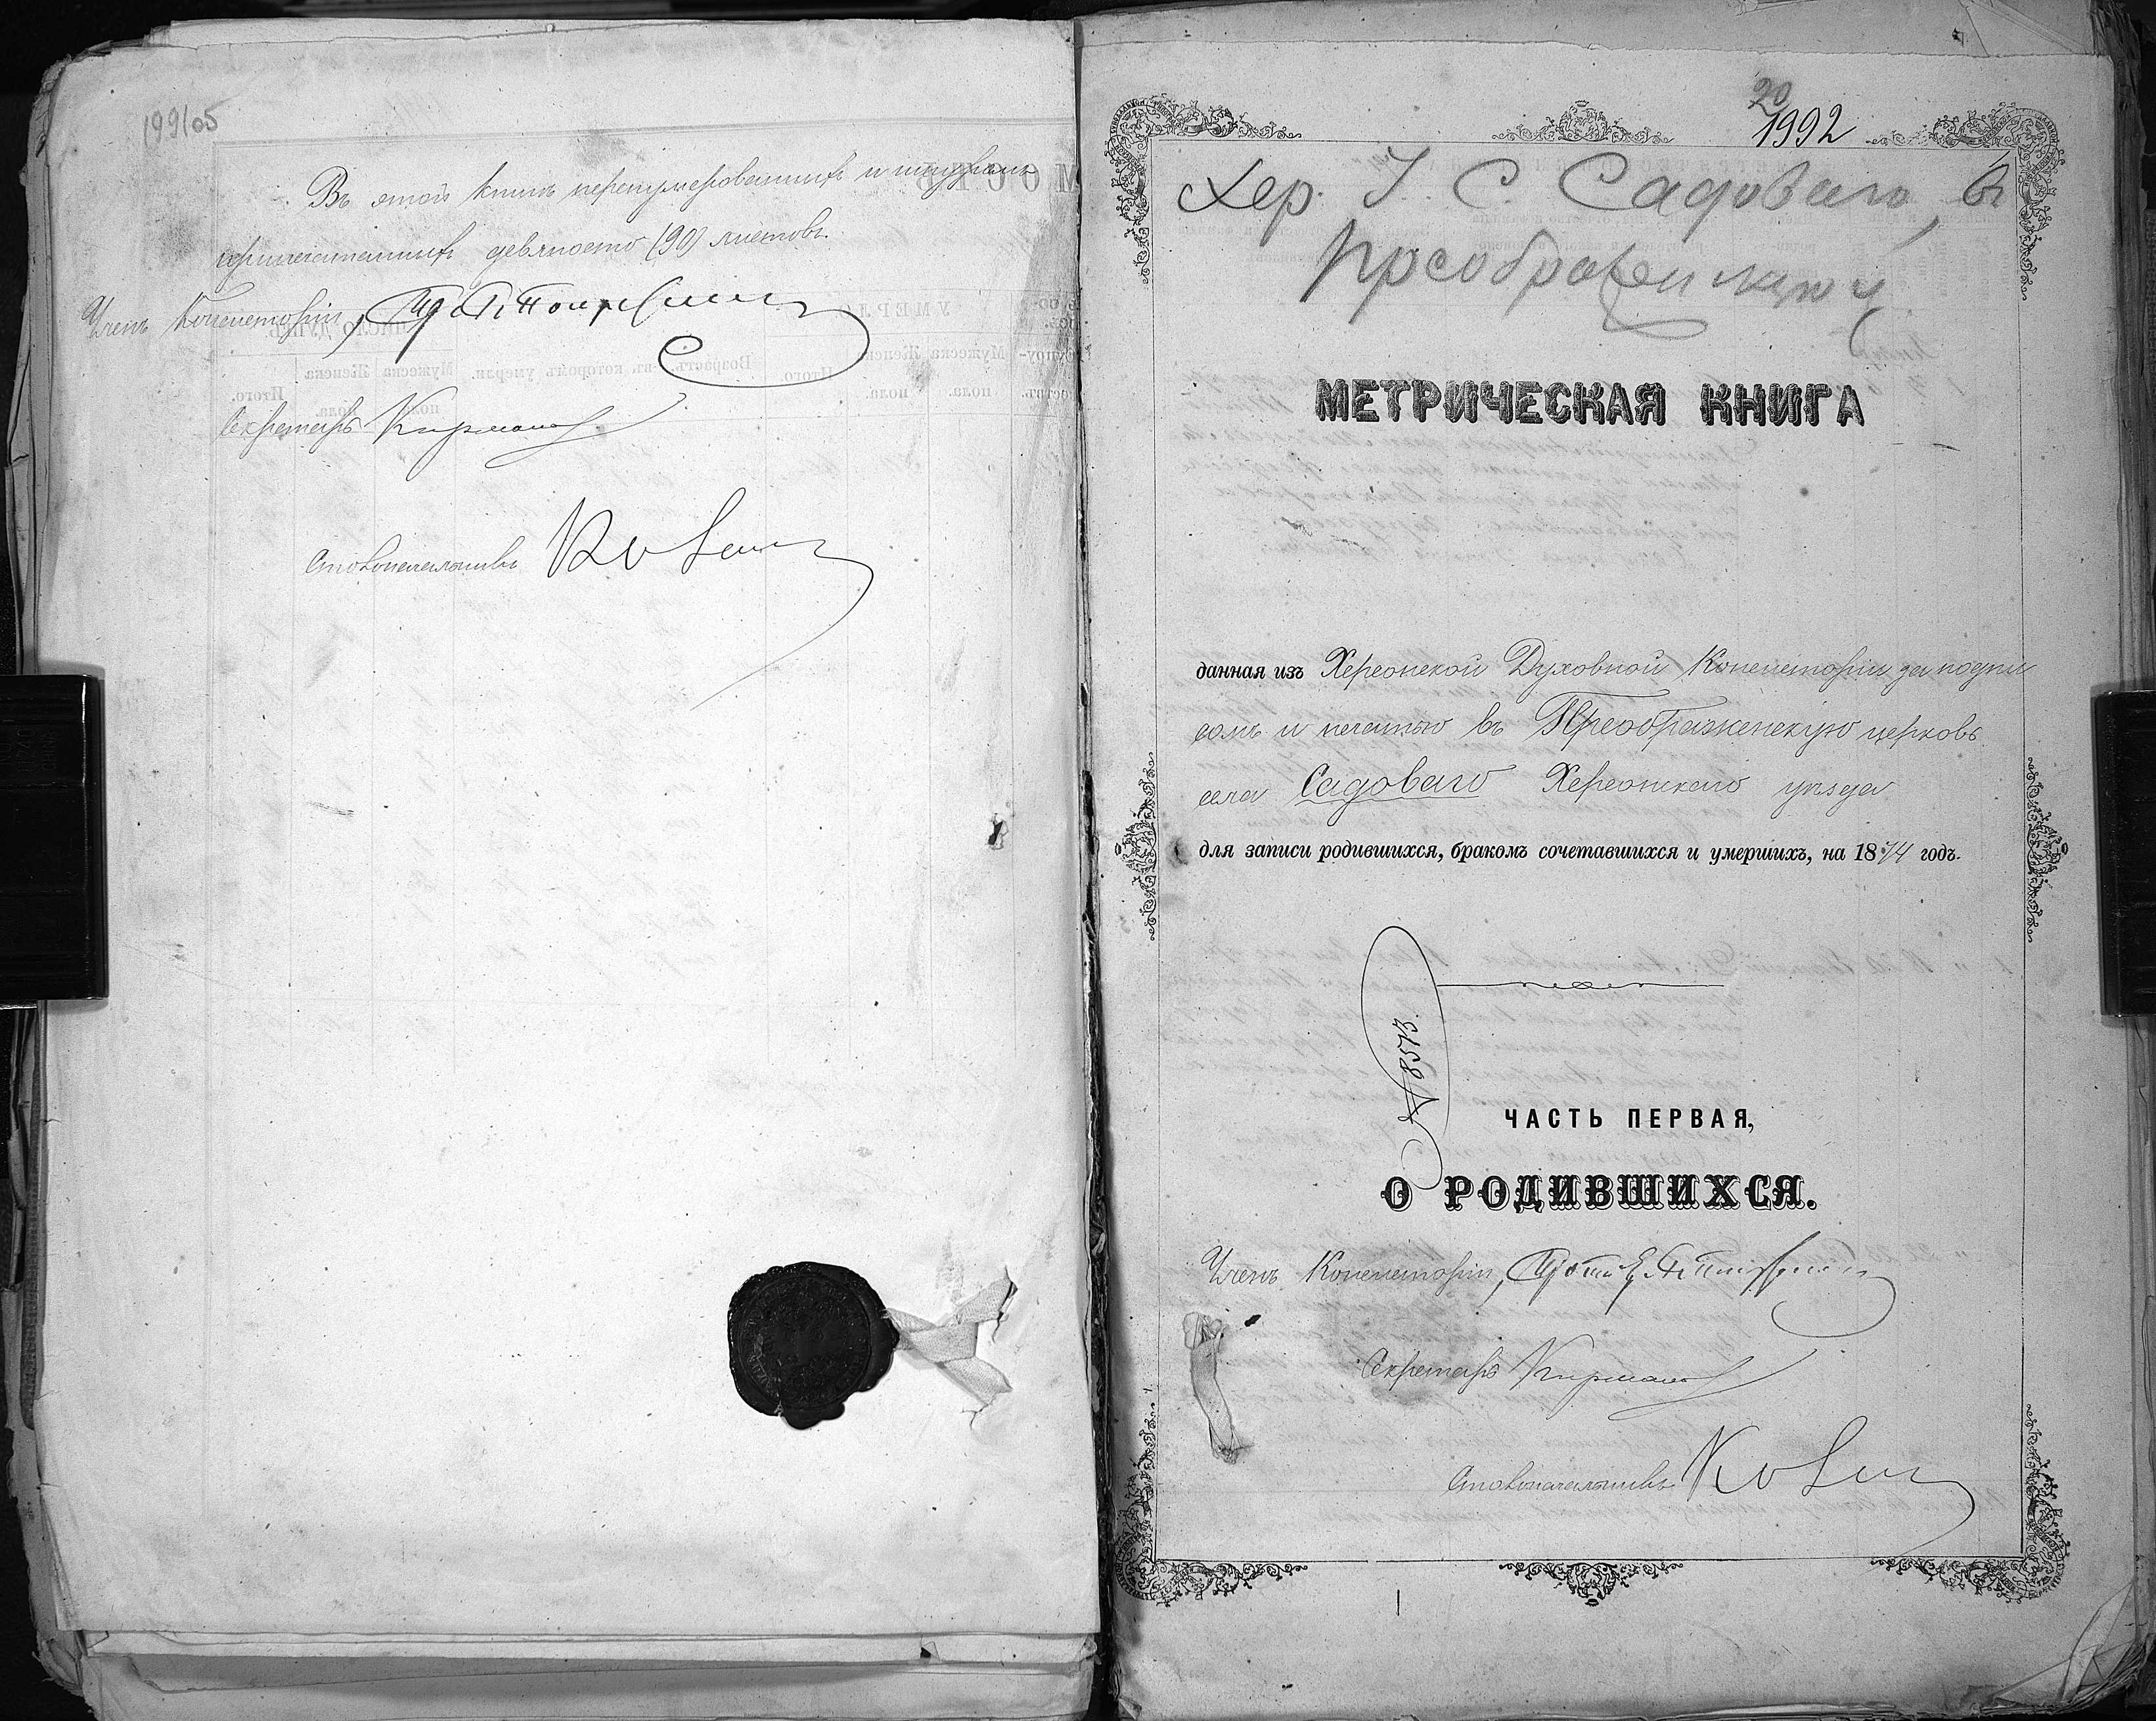 199105
Въ этой книгѣ перенумерованныхъ и шнуромъ
припечатанныхъ девяносто (90) листовъ.
Членъ Консисторіи,
Секретарь
Столоначальникъ
20
1992
Хер. У. С. Садоваго, въ
Преображенскую ц
МЕТРИЧЕСКАЯ КНИГА
данная изъ Херсонской Духовной Консисторіи за подпи
сомъ и печатью въ Преображенскую церковь
села Садоваго Херсонскаго уѣзда
для записи родившихся, бракомъ сочетавшихся и умершихъ, на 1874 годъ.
№ 8573
ЧАСТЬ ПЕРВАЯ,
О РОДИВШИХСЯ.
Членъ Консисторіи,
Секретарь
Столоначальникъ